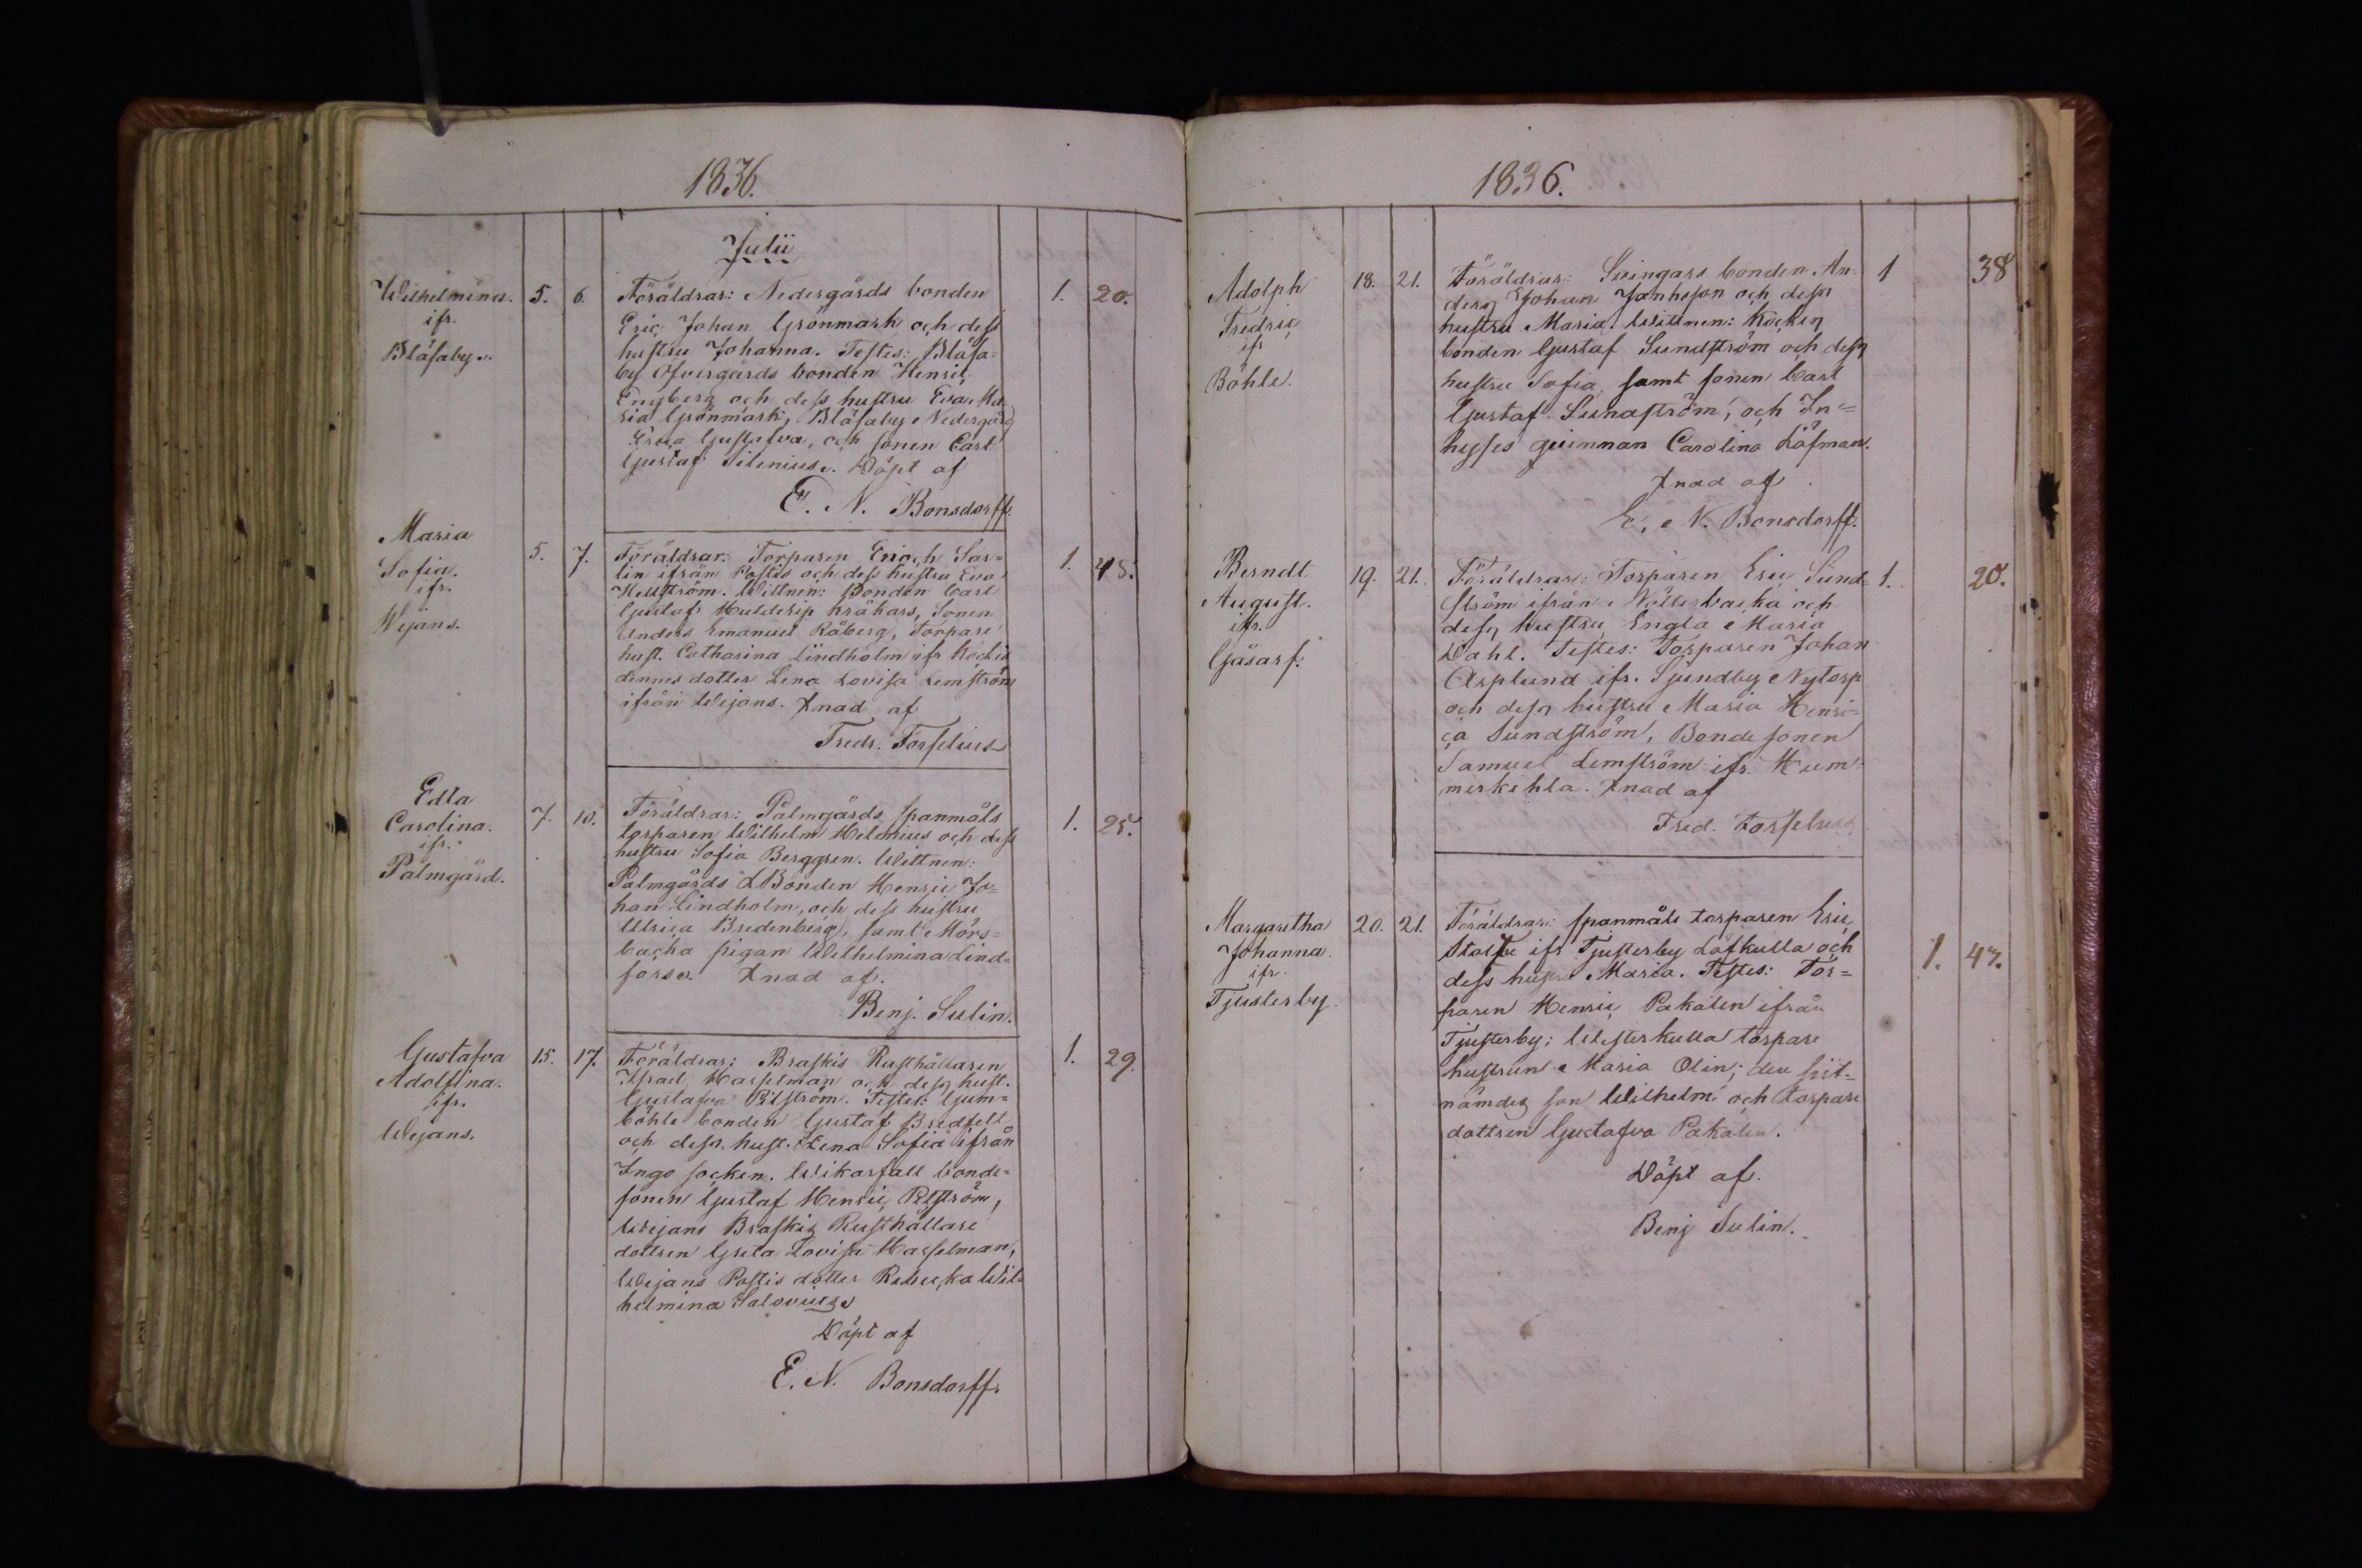 1836.
Julii
Wilhelmina.
ifr.
Bläsaby.
5. 6.
Föräldrar: Nedergårds bonden
Eric Johan Grönmark och dess
hustru Johanna. Testes: Bläsa=
by Öfvergårds bonden Henric
Engberg och dess hustru Eva Ma-
ria Grönmark, Bläsaby Nedergård
Gustafva, och sonen Carl
Gustaf Silenius. Döpt af
E. N. Bonsdorff.
1. 20.
Maria
Sofia.
ifr.
Wejans.
5. 7.
Föräldrar: Torparen Enoch Sar=
lin ifrån Postis och dess hustru Eva
Hellström. Wittnen: Bonden Carl
Gustaf Krähars, Sonen
Anders Emanuel Råberg, Torpare
hust. Catharina Lindholm ifr Kockis
dennes dotter Lena Lovisa Lemström
ifrån Wejans. Xnad af
Fredr. Forselius
1. 45.
Edla
Carolina.
ifr.
Palmgård.
7. 10.
Föräldrar: Palmgårds spanmåls
torparen Wilhelm Helenius och dess
hustru Sofia Berggren. Wittnen:
Palmgårds LBonden Henric Jo=
han Lindholm, och dess hustru
Ulrica Bredenberg, samt Mörs=
backa pigan Wilhelmina Lind=
fors. Xnad af.
Benj. Sulin.
1. 25.
Gustafva
Adolfina.
ifr.
Wejans.
15. 17.
Föräldrar: Braskis Rusthållaren
Israel Hasselman och dess hust.
Gustafva Pilström. Testes: Gum=
böhle bonden Gustaf Bredfelt
och dess hust. Lena Sofia ifrån
Ingo socken. Wikarfall bonde=
sonen Gustaf Henric Pilström,
Wejans Braskis Rusthållare
dottren Greta Lovisa Hasselman,
Wejans Postis dotter Rebecka Wil=
helmina
Döpt af
E. N. Bonsdorff.
1. 29.
1836.
Adolph
Fredric
ifr
Böhle.
18. 21.
Föräldrar: Svingars bonden An-
ders Johan Janhsson och dess
hustru Maria. Wittnen: Kockes
bonden Gustaf Sundström och dess
hustru Sofia, samt sonen Carl
Gustaf Sundström, och In=
hyses quinnan Carolina Löfman.
Xnad af
E. N. Bonsdorff.
1 38
Berndt
August.
ifr.
Gåsarf.
19. 21.
Föräldrar: Torparen Eric Sund=
ström ifrån Nötterbacka och
dess hustru Engla Maria
Dahl. Testes: Torparen Johan
Asplund ifr. Sjundby Nytorp
och dess hustru Maria Henri=
ca Sundström, Bonde sonen
Samuel Lemström ifr. Hum=
merkihla. Xnad af
Fred. Forselius
1. 20.
Margaretha
Johanna.
ifr.
Tjusterby.
20. 21.
Föräldrar: spanmåls torparen Eric
Stolfe ifr Tjusterby Löfkulla och
dess hustru Maria. Testes: Tor=
paren Henric Pakalen ifrån
Tjusterby; Westerkulla torpare
hustrun Maria Olin; den sist=
nämdes son Wilhelm och torpare
dottren Gustafva Pakalen.
Döpt af.
Benj Sulin.
1. 47.